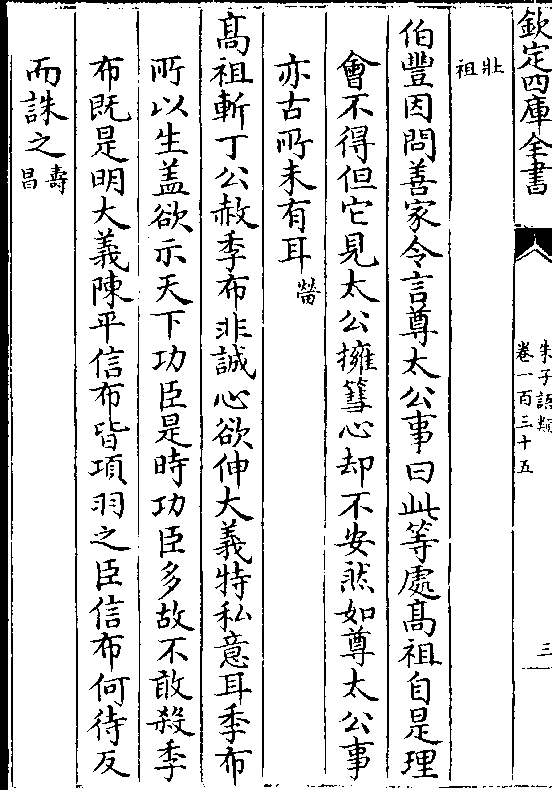 欽定四庫全書
朱子語類
卷一百三十五
三
壯祖
伯豐因問善家令言尊太公事曰此等處髙祖自是理
㑹不得但它見太公擁篲心却不安然如尊太公事
亦古所未有耳㽦
髙祖斬丁公赦季布非誠心欲伸大義特私意耳季布
所以生盖欲示天下功臣是時功臣多故不敢殺季
布既是明大義陳平信布皆項羽之臣信布何待反
而誅之壽昌